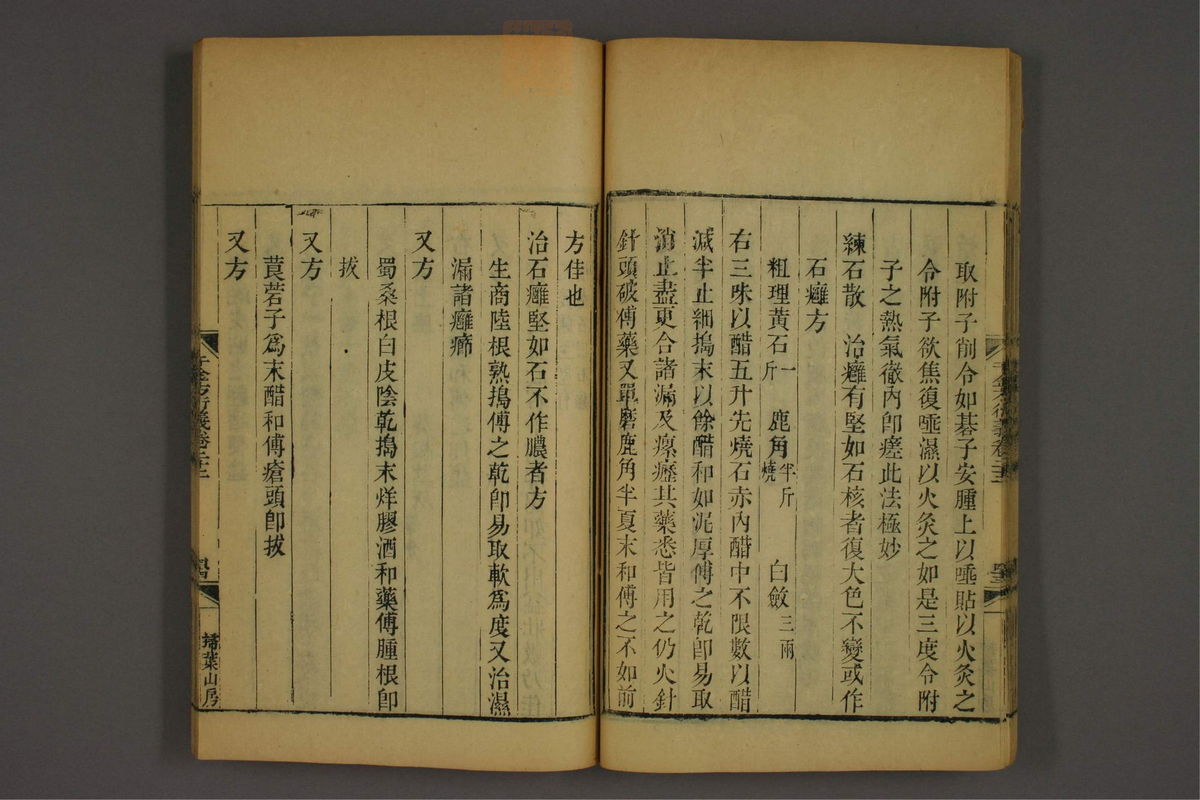 取附子削令如碁子安腫上以唾貼以火灸之
令附子欲焦復唾濕以火灸之如是三度令附
子之熱氣徹內卽瘥此法極妙
練石散　治癰有堅如石核者復大色不變或作
石癰方
粗理黃石一斤　鹿角半斤燒　白斂三兩
右三味以醋五升先燒石赤內醋中不限數以醋
減半止細搗末以餘醋和如泥厚傅之乾卽易取
消止盡更合諸漏及瘰癧其藥悉皆用之仍火針
針頭破傅藥又單磨鹿角半夏末和傅之不如前
方佳也
治石癰堅如石不作膿者方
生商陸根熟搗傅之乾卽易取軟爲度又治濕
漏諸癰癤
又方
蜀桑根白皮陰乾搗末烊膠酒和藥傅腫根卽
拔
又方
莨菪子爲末醋和傅瘡頭卽拔
又方
千金方衍義卷二十二
掃葉山房